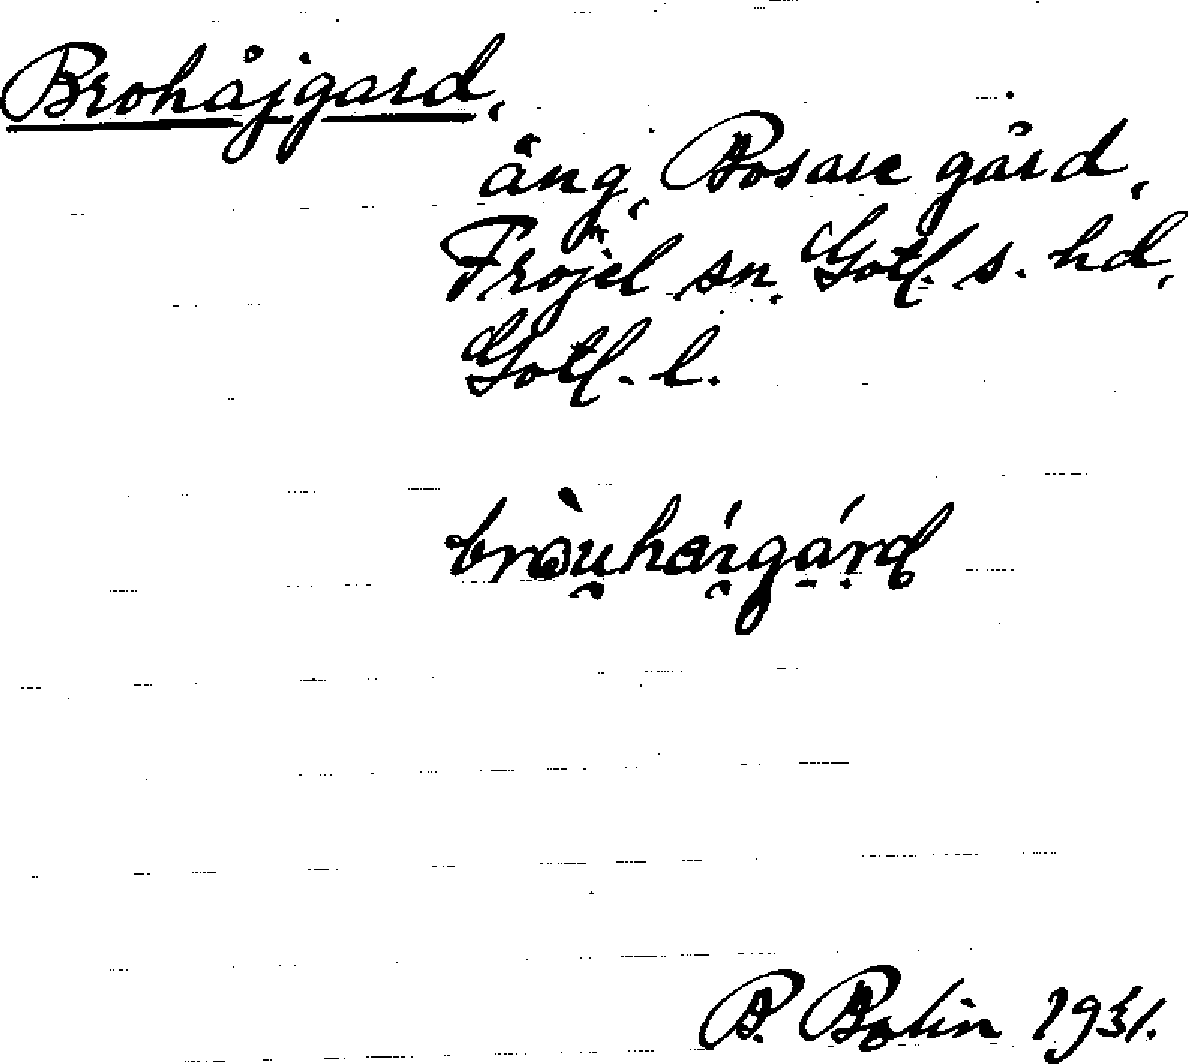 Brohåjgard,
äng, Bosare gård,
Fröjel sn. Gotl. s. hd,
Gotl. l.
B. Bolin 1931.